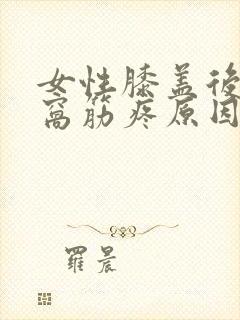 女性膝盖後
窩筋疼原因
羅晨